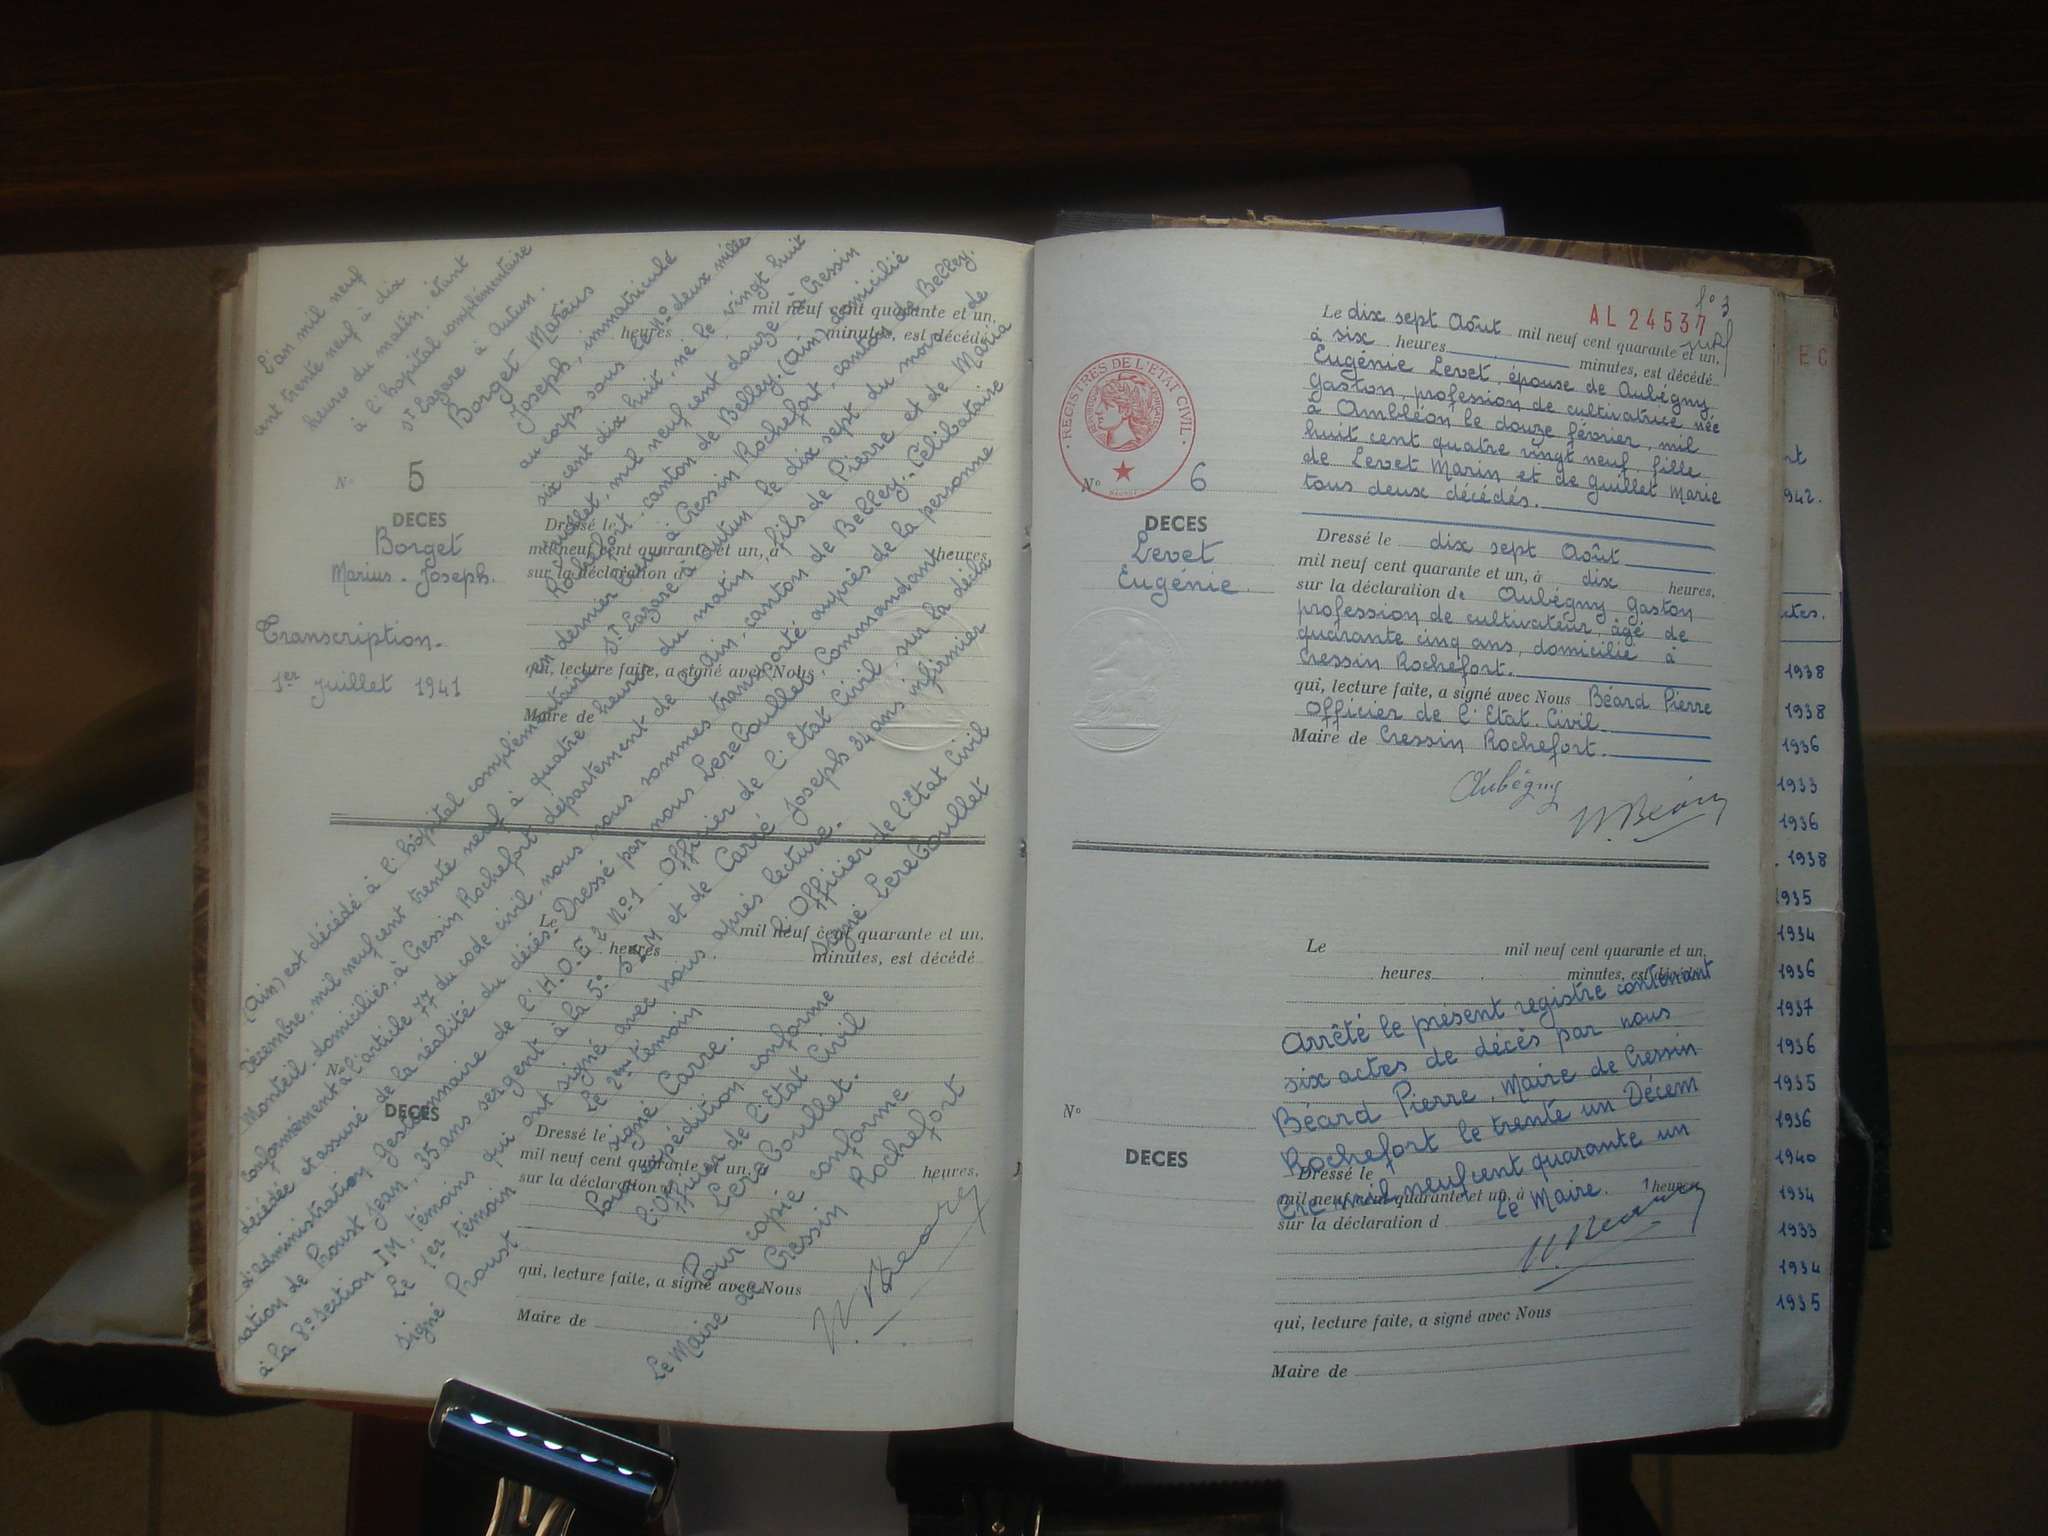 L'an mil neuf
cent trente neuf à dix
heures du matin, étant
à l'hôpital complémentaire
St Lazare à Autun.
Borget Marius
Joseph, immatriculé
au corps sous le No deux mille
six cent dix huit, né le vingt huit
Juillet, mil neuf cent douze à Cressin
Rochefort canton de Belley. (Ain) domicilié
en dernier lieu à Cressin Rochefort, canton de Belley.
(Ain) est décédé à l'hôpital complémentaire St Lazare à Autun le dix sept du mois de
Décembre, mil neuf cent trente neuf à quatre heures du matin, fils de Pierre et de Maria
Monteil, domiciliés, à Cressin Rochefort département de l'Ain, canton de Belley. Célibataire
Conformément à l'article 77 du code civil, nous nous sommes transporté auprès de la personne
décédée et assuré de la réalité du décès. Dressé par nous Lereboullet, Commandant
d'administration Gestionnaire de l'H.O.E 2 No 1. Officier de l'Etat Civil, sur la décla
ration de Proust Jean, 35 ans sergent à la 5° S I M et de Carré Joseph 34 ans infirmier
à la 8° section IM, témoins qui ont signé avec nous après lecture.
Le 1er témoin Le 2me témoin L'Officier de l'Etat Civil
signé Proust signé Carre. Signé Lereboullet
Pour expédition conforme
l'Officier de l'Etat Civil
Lereboullet.
Pour copie conforme
Le Maire de Cressin Rochefort
mil neuf cent quarante et un,
heures minutes, est décédé
No 5
DECES
Borget
Marius-Joseph.
Transcription.
1er Juillet 1941
Dressé le
mil neuf cent quarante et un, à heures,
sur la déclaration d
qui, lecture faite, a signé avec Nous
Maire de
Le mil neuf cent quarante et un,
heures minutes, est décédé
No
DECES
Dressé le
mil neuf cent quarante et un, heures,
sur la déclaration d
qui, lecture faite, a signé avec Nous
Maire de
fo 3
AL 24537
Le dix sept Août mil neuf cent quarante et un,
à six heures minutes, est décédé
Eugénie Levet, épouse de Aubégny,
Gaston, profession de cultivatrice née
à Ambléon le douze février, mil
huit cent quatre vingt neuf, fille
de Levet Marin et de Guillet Marie
tous deux décédés.
REGISTRES DE L'ETAT CIVIL
No 6
DECES
Levet
Eugénie
Dressé le dix sept Août
mil neuf cent quarante et un, à dix heures,
sur la déclaration de Aubégny Gaston
profession de cultivateur, âgé de
quarante cinq ans, domicilié à
Cressin Rochefort.
qui, lecture faite, a signé avec Nous Béard Pierre
Officier de l'Etat. Civil
Maire de Cressin Rochefort.
Aubégny
Le mil neuf cent quarante et un,
heures minutes, est décédé
Arrêté le présent registre contenant
six actes de décès par nous
Béard Pierre, Maire de Cressin
Rochefort le trente un Décem
bre mil neuf cent quarante un
Le Maire.
No
DECES
Dressé le
mil neuf cent quarante et un, à heures,
sur la déclaration d
qui, lecture faite, a signé avec Nous
Maire de
1942.
1938
1938
1936
1933
1936
1938
1935
1934
1936
1937
1936
1935
1936
1940
1934
1933
1934
1935